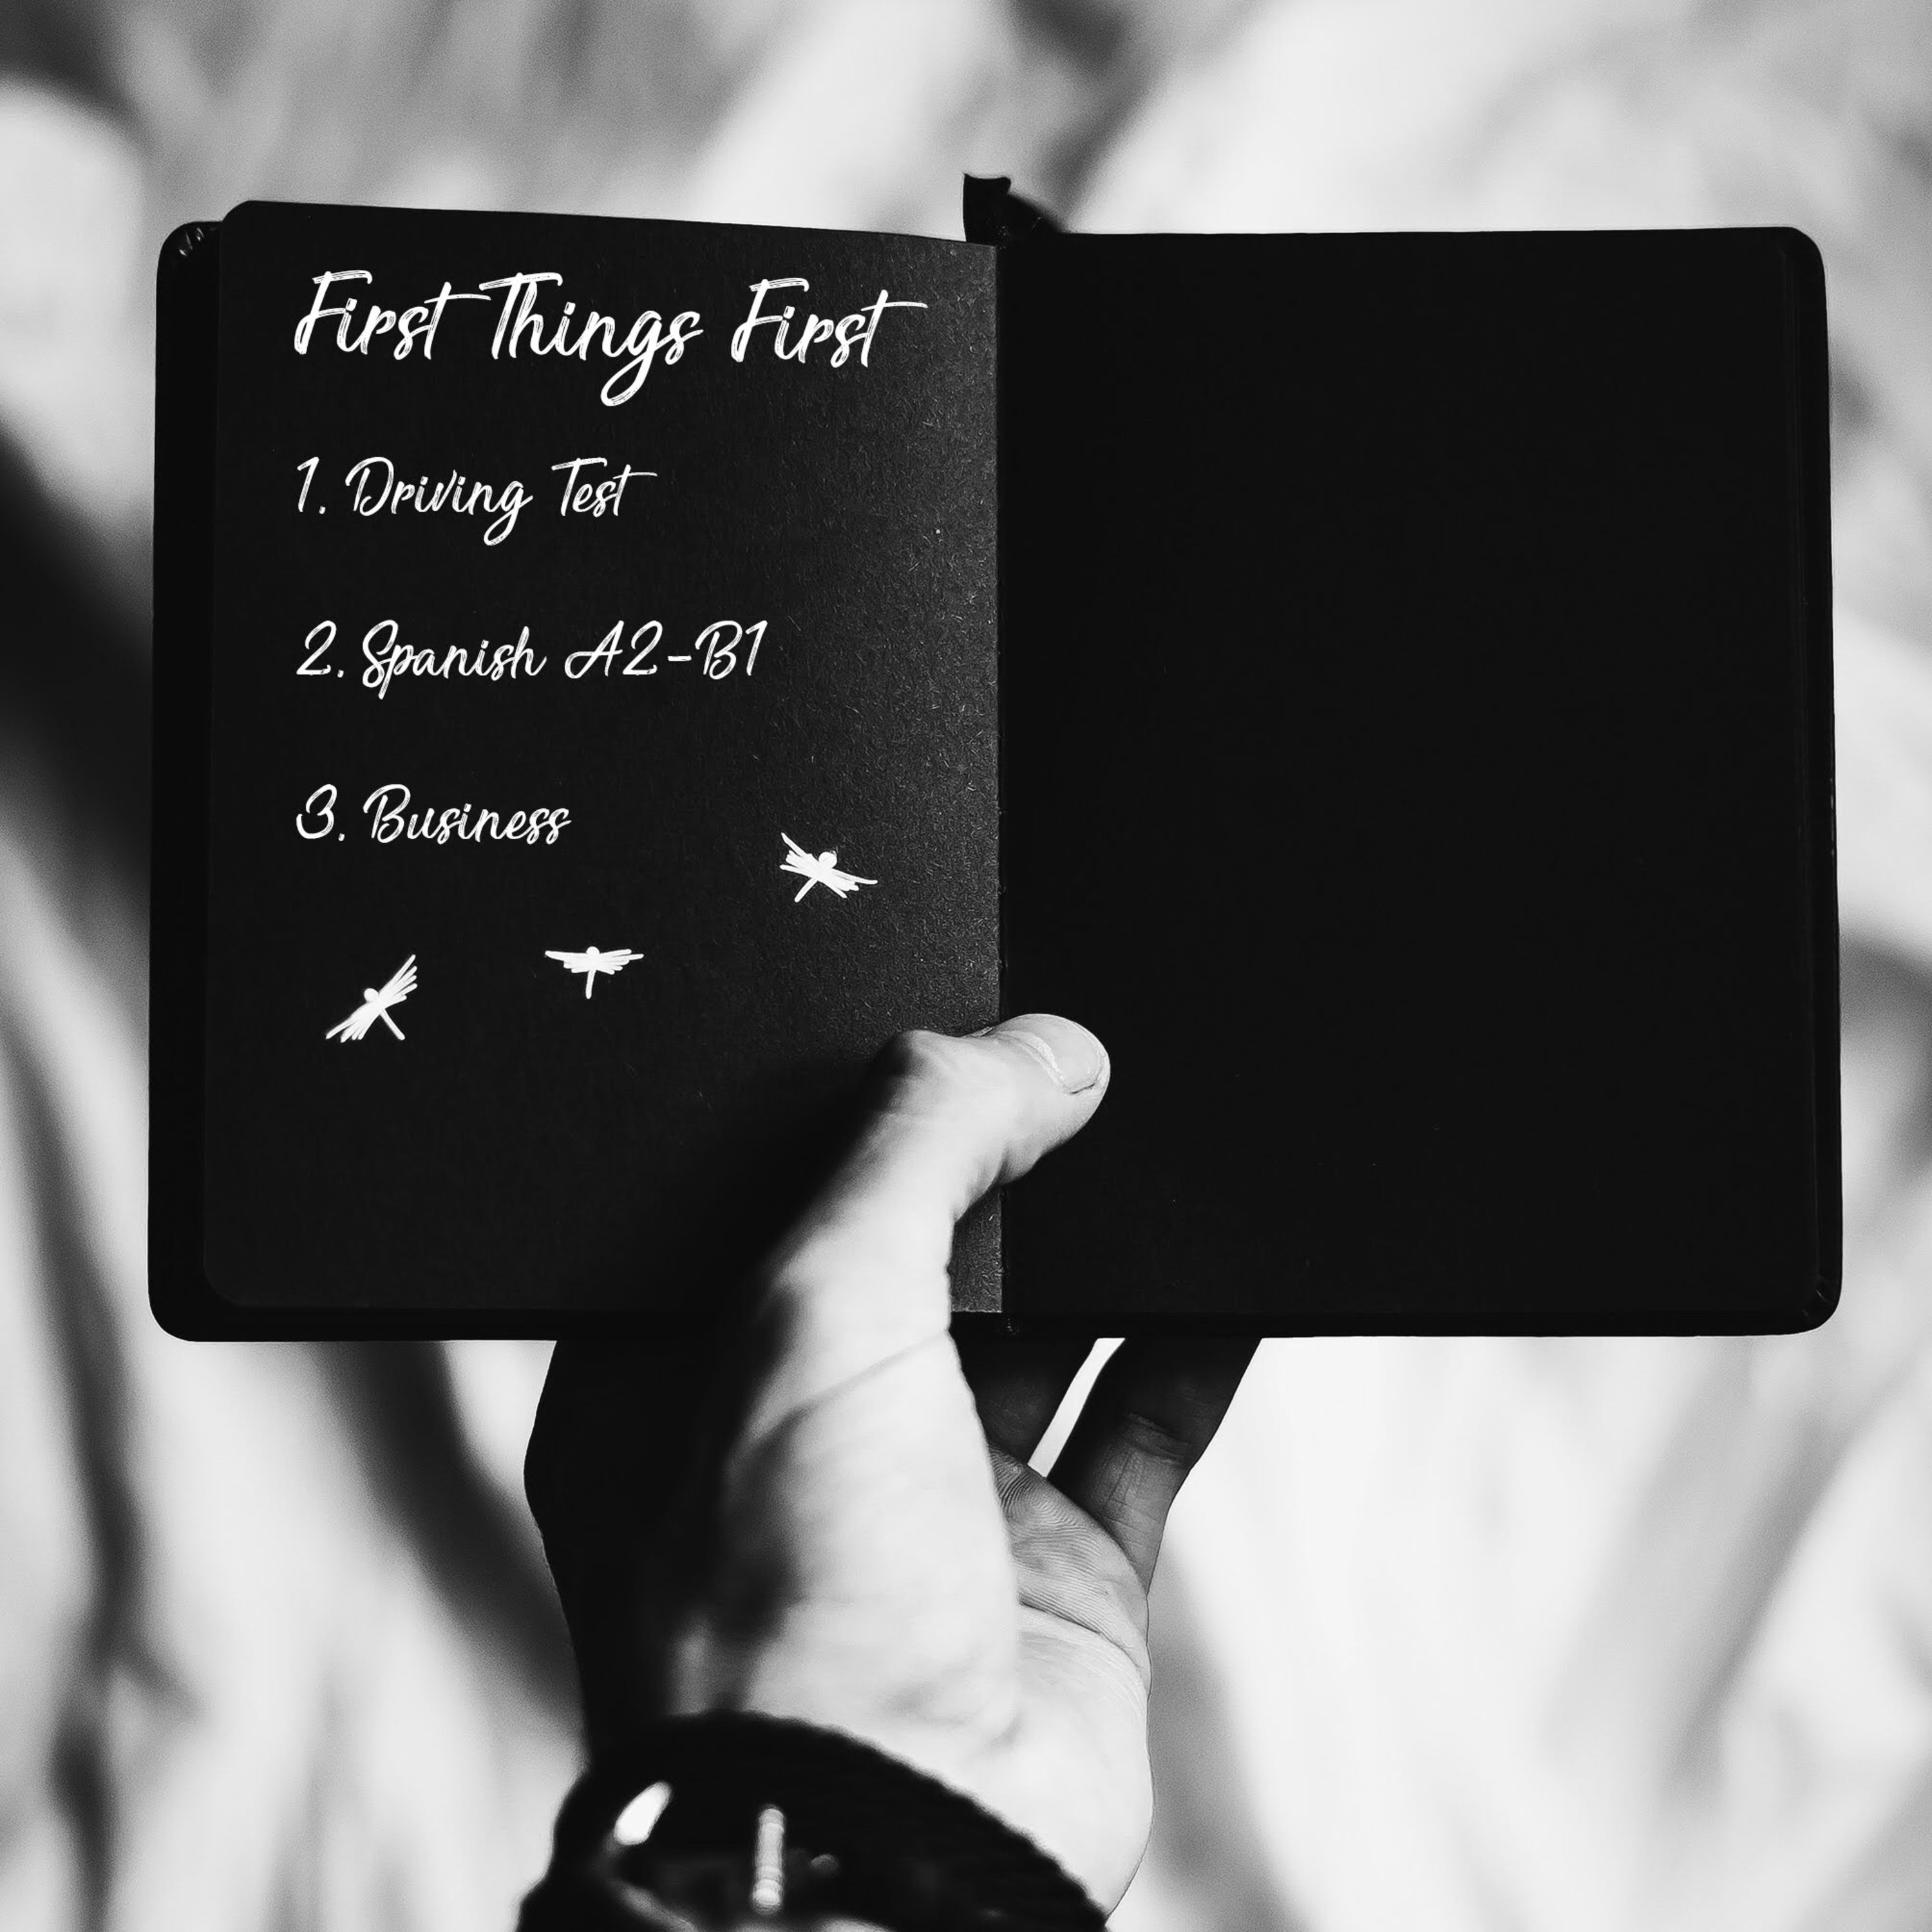 First Things First
1. Driving Test
2. Spanish A2-B1
3. Business